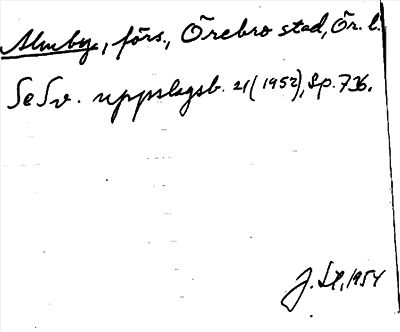 Almby, förs., Örebro stad, Ör. l.
Se Sv. uppslagsb. 21 (1952), Sp. 736.
J. Sl, 1954